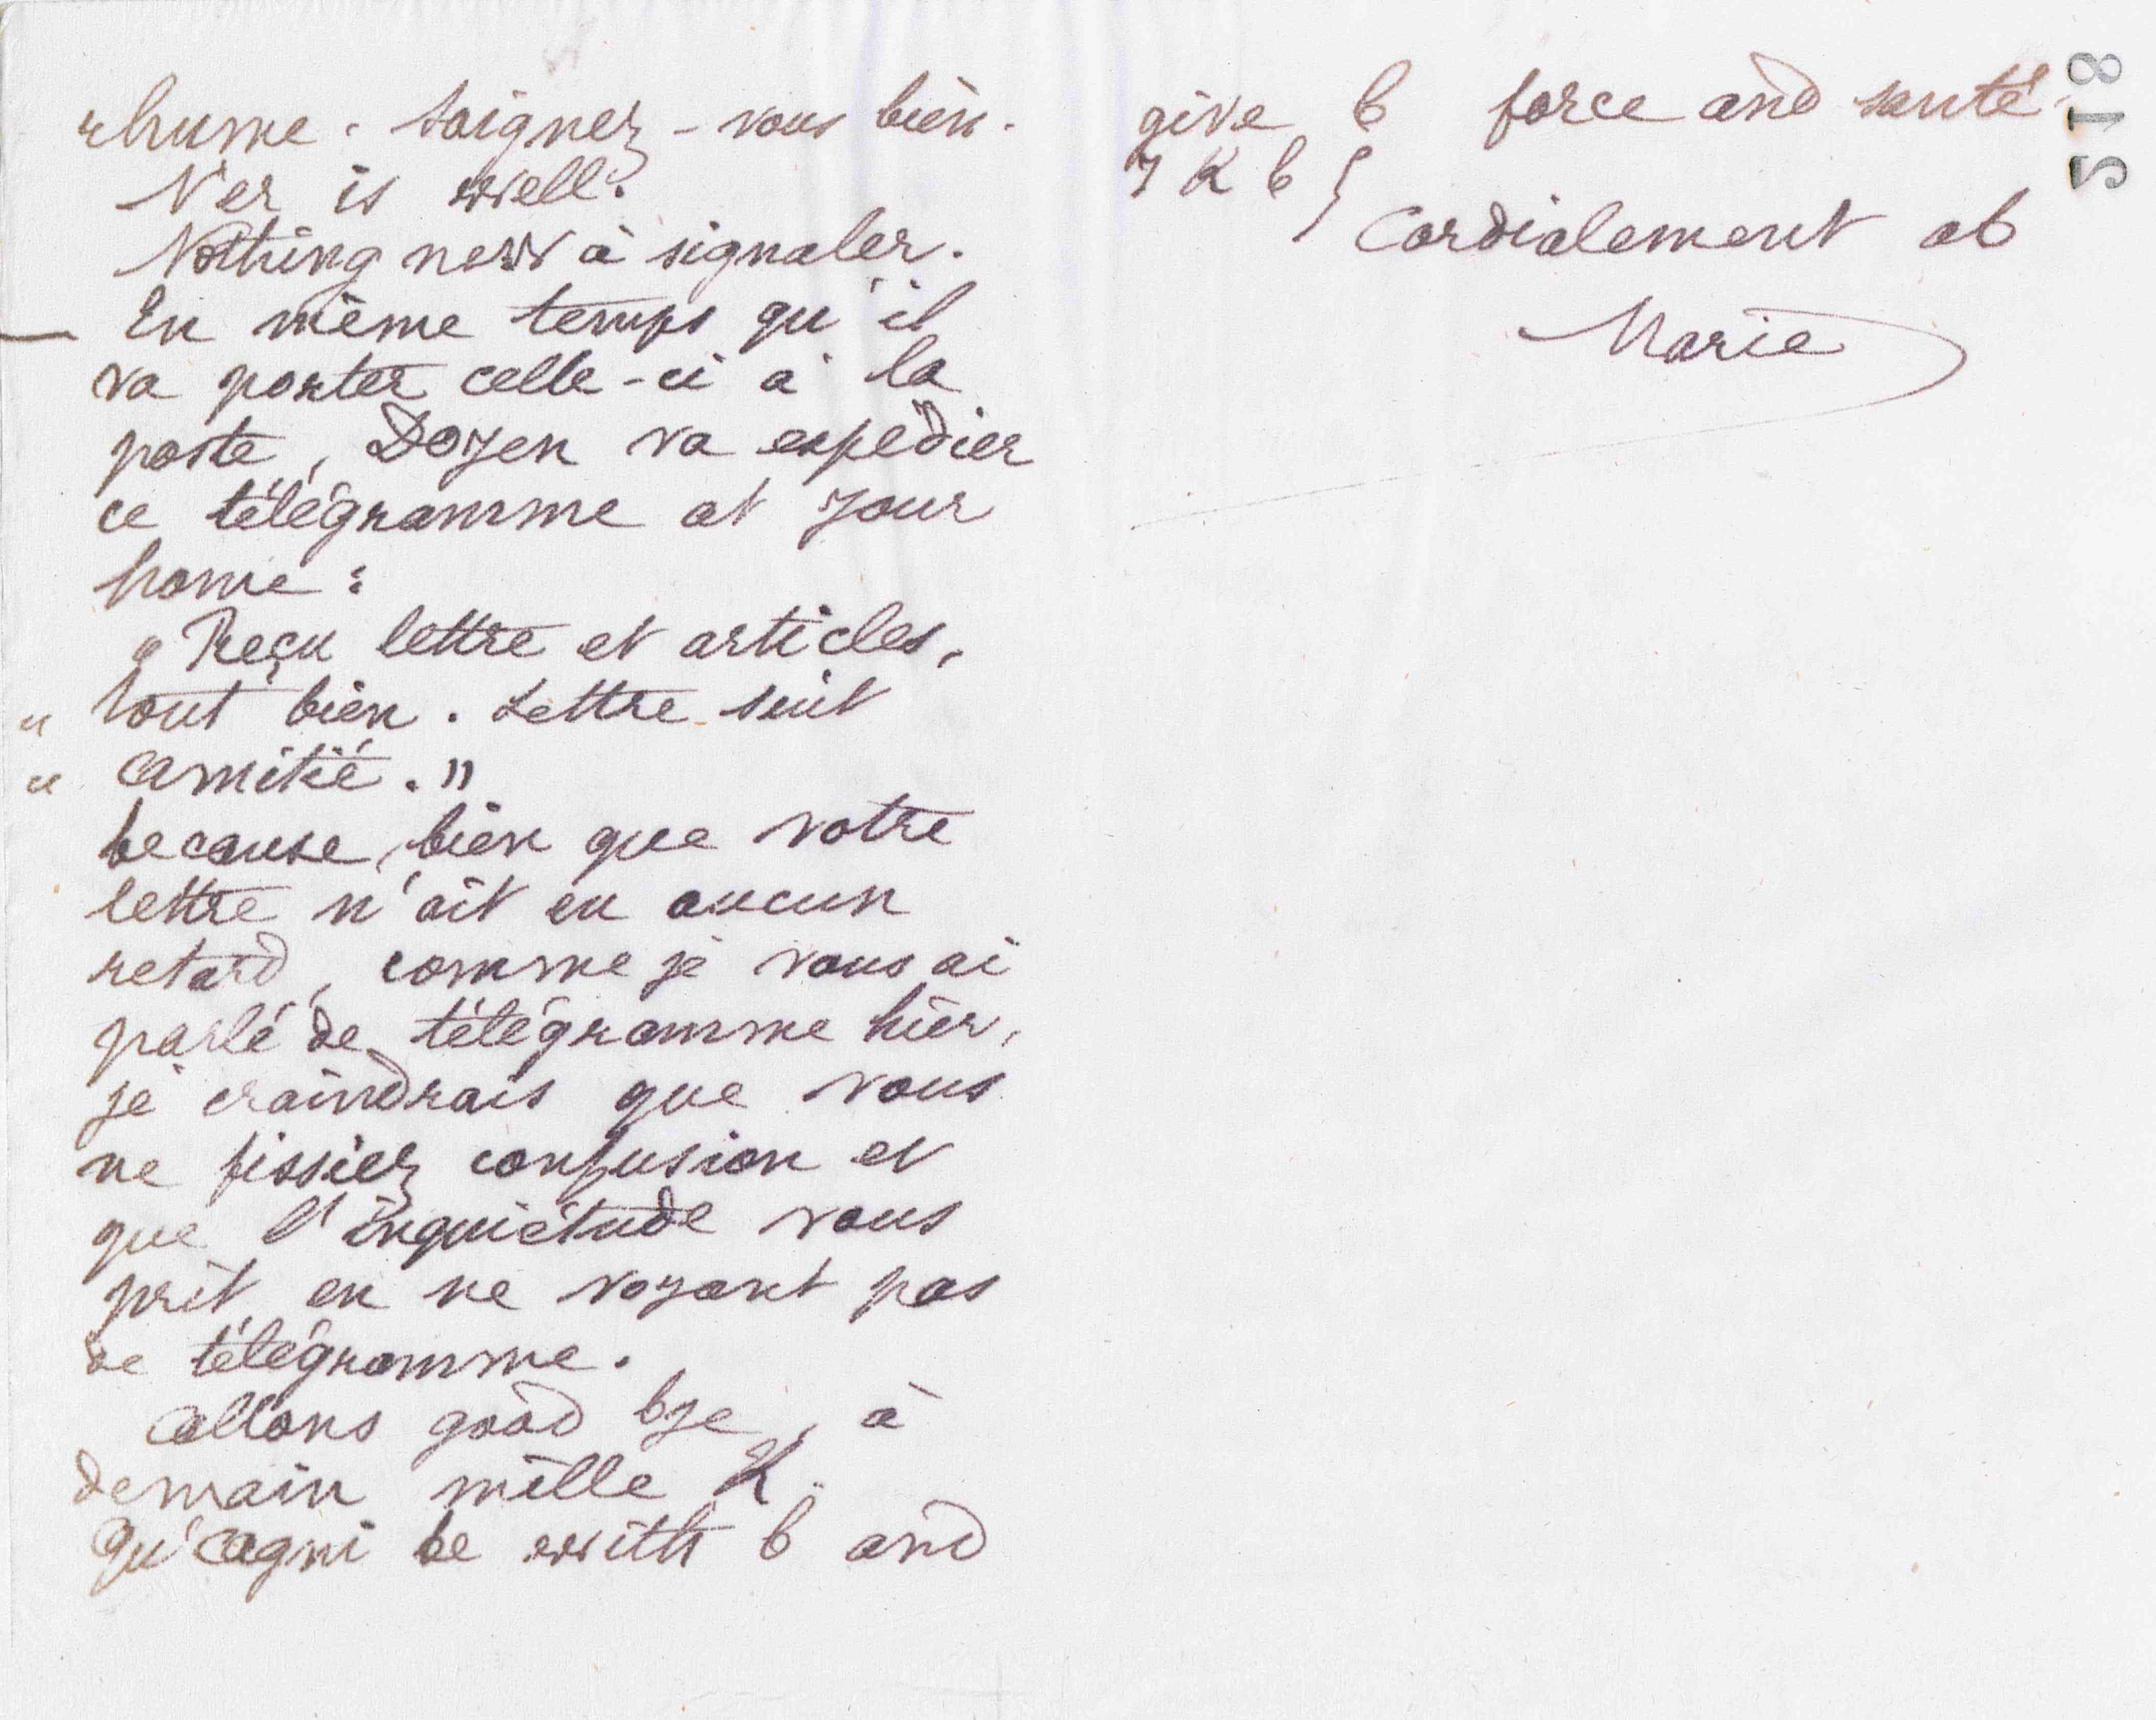 rhume. Soignez-vous bien.
N'er is well.
Nothing new à signaler.
— En même temps qu'il
va porter celle-ci à la
poste, Doyen va expédier
ce télégramme at your
home :
" Reçu lettre et articles,
" tout bien. Lettre suit
" amitié. "
because, bien que votre
lettre n'ait eu aucun
retard, comme je vous ai
parlé de télégramme hier,
je craindrais que vous
ne fissiez confusion et
que l'inquiétude vous
prît en ne voyant pas
de télégramme.
Allons good bye, à
demain mille K.
Qu'Agni be with b and
give b force and santé
y K b }
Cordialement ab
Marie
518